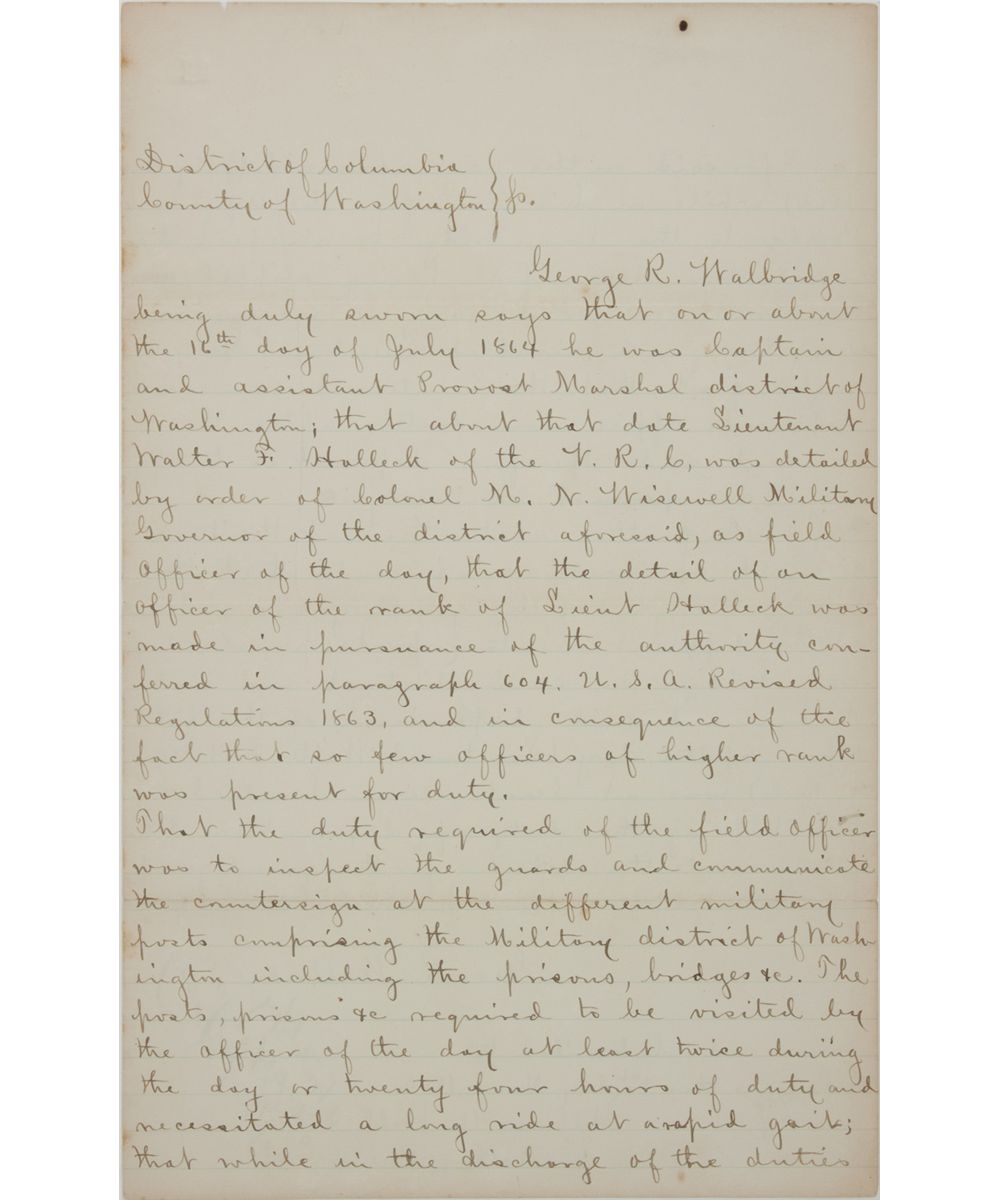 District of Columbia
County of Washington } ss.
George R. Walbridge
being duly sworn says that on or about
the 16th day of July 1864 he was Captain
and assistant Provost Marshal district of
Washington; that about that date Lieutenant
Walter F. Halleck of the V. R. C, was detailed
by order of Colonel M. N. Wisewell Military
Governor of the district aforesaid, as field
Officer of the day, that the detail of an
officer of the rank of Lieut Halleck was
made in pursuance of the authority con-
ferred in paragraph 604. U. S. A. Revised
Regulations 1863, and in consequence of the
fact that so few officers of higher rank
was present for duty.
That the duty required of the field Officer
was to inspect the guards and communicate
the countersign at the different military
posts comprising the Military district of Wash-
ington including the prisons, bridges &c. The
posts, prisons &c required to be visited by
the officer of the day at least twice during
the day or twenty four hours of duty and
necessitated a long ride at a rapid gait;
that while in the discharge of the duties